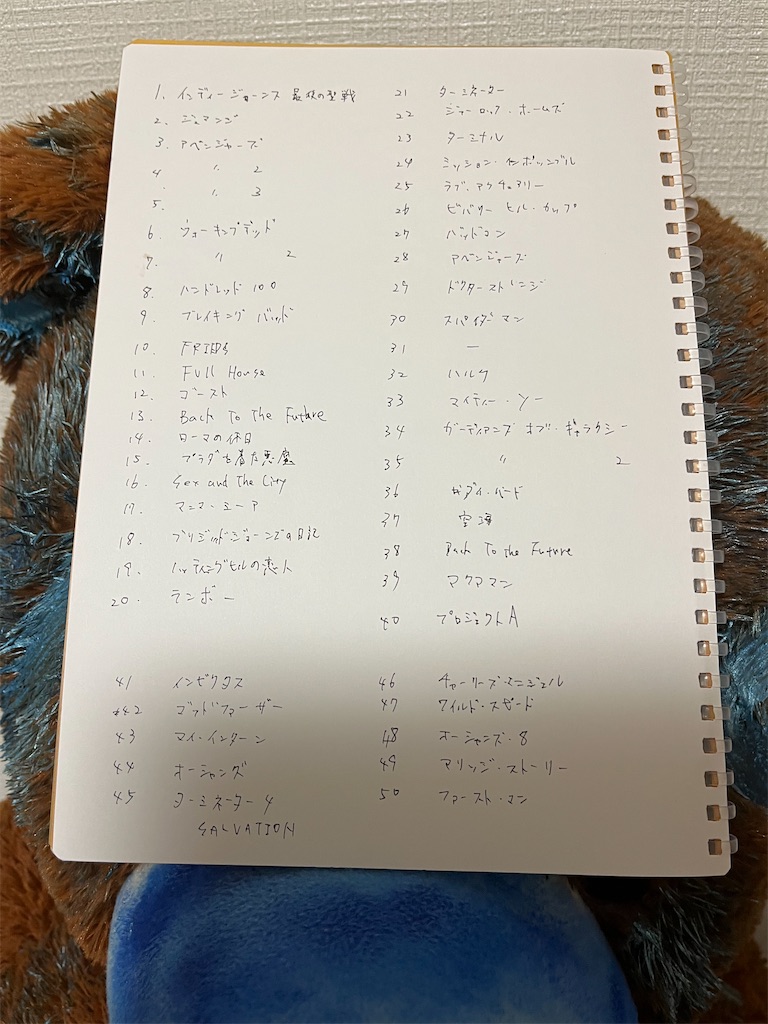 1. インディージョーンズ 最後の聖戦
2. ジュマンジ
3. アベンジャーズ
4 〃 2
5. 〃 3
6. ウォーキングデッド
7. 〃 2
8. ハンドレッド 100
9. ブレイキング バッド
10.
11. Full House
12. ゴースト
13. Back To The Future
14. ローマの休日
15. プラダを着た悪魔
16. Sex and The City
17. マンマ・ミーア
18. ブリジットジョーンズの日記
19. ノッティングヒルの恋人
20. ランボー
21 ターミネーター
22 シャーロック・ホームズ
23 ターミナル
24 ミッション・インポッシブル
25 ラブ・アクチュアリー
26 ビバリー ヒル・カップ
27 バッドコン
28 アベンジャーズ
29 ドクターストレンジ
30 スパイダーマン
31 ー
32 ハルク
33 マイティー・ソー
34 ガーディアンズ オブ・ギャラクシー
35 〃 2
36 ザ・ダイ・ハード
37 空海
38 Back To the Future
39 アクアマン
40 プロジェクトA
41 インビクタス
42 ゴッドファーザー
43 マイ・インターン
44 オーシャンズ
45 ターミネーター4
SALVATION
46 チャーリーズ・エンジェル
47 ワイルド・スピード
48 オーシャンズ・8
49 マリッジ・ストーリー
50 ファースト・マン